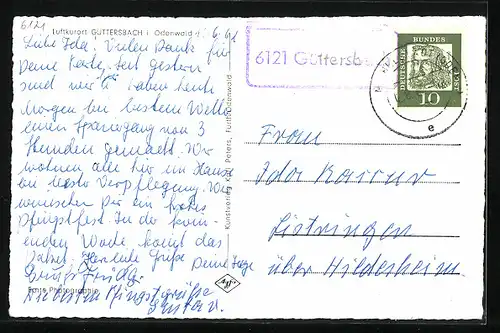 6121
Luftkurort GÜTTERSBACH i. Odenwald
6.62
Liebe Ida! Vielen Dank für
Deine Karte, seit gestern
sind wir u. haben heute
Morgen bei bestem Wetter
einen Spaziergang von 3
Stunden gemacht. Wir
wohnen alle hier im Hause
bei bester Verpflegung. Wir
wünschen Dir ein frohes
Pfingstfest. In der kom-
menden Woche kommt das
Herzliche Grüße Deine
Liebe Pfingstgrüße
Gustav.
Echte Photographie
Kunstverlag Karl Peters, Fürth/Odenwald
6121 Güttersb
DEUTSCHE BUNDESPOST
10
e
Frau
Ida
Listringen
über Hildesheim
Agfa